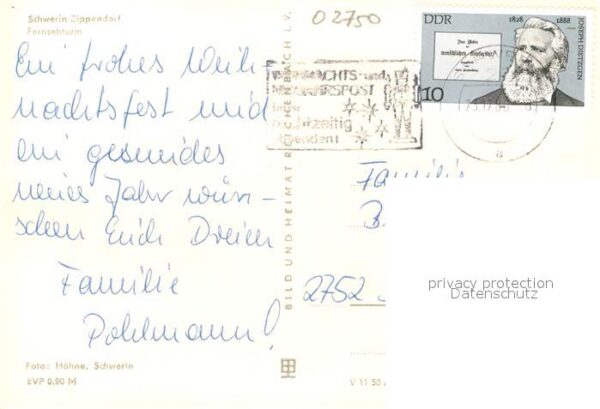 Schwerin-Zippendorf
Fernsehturm
Ein frohes Weih-
nachtsfest und
ein gesundes
neues Jahr wün-
schen Euch Dreien
Familie
Pohlmann!
Foto: Höhne, Schwerin
EVP 0,20 M
BILD UND HEIMAT REICHENBACH I. V.
V 11 50
02750
DDR
1828 1888
JOSEPH DIETZGEN
Das Wesen
der
menschlichen Kopfarbeit
10
NACHTS- und
RSPOST
zeitig
Familie
B
2752
privacy protection
Datenschutz